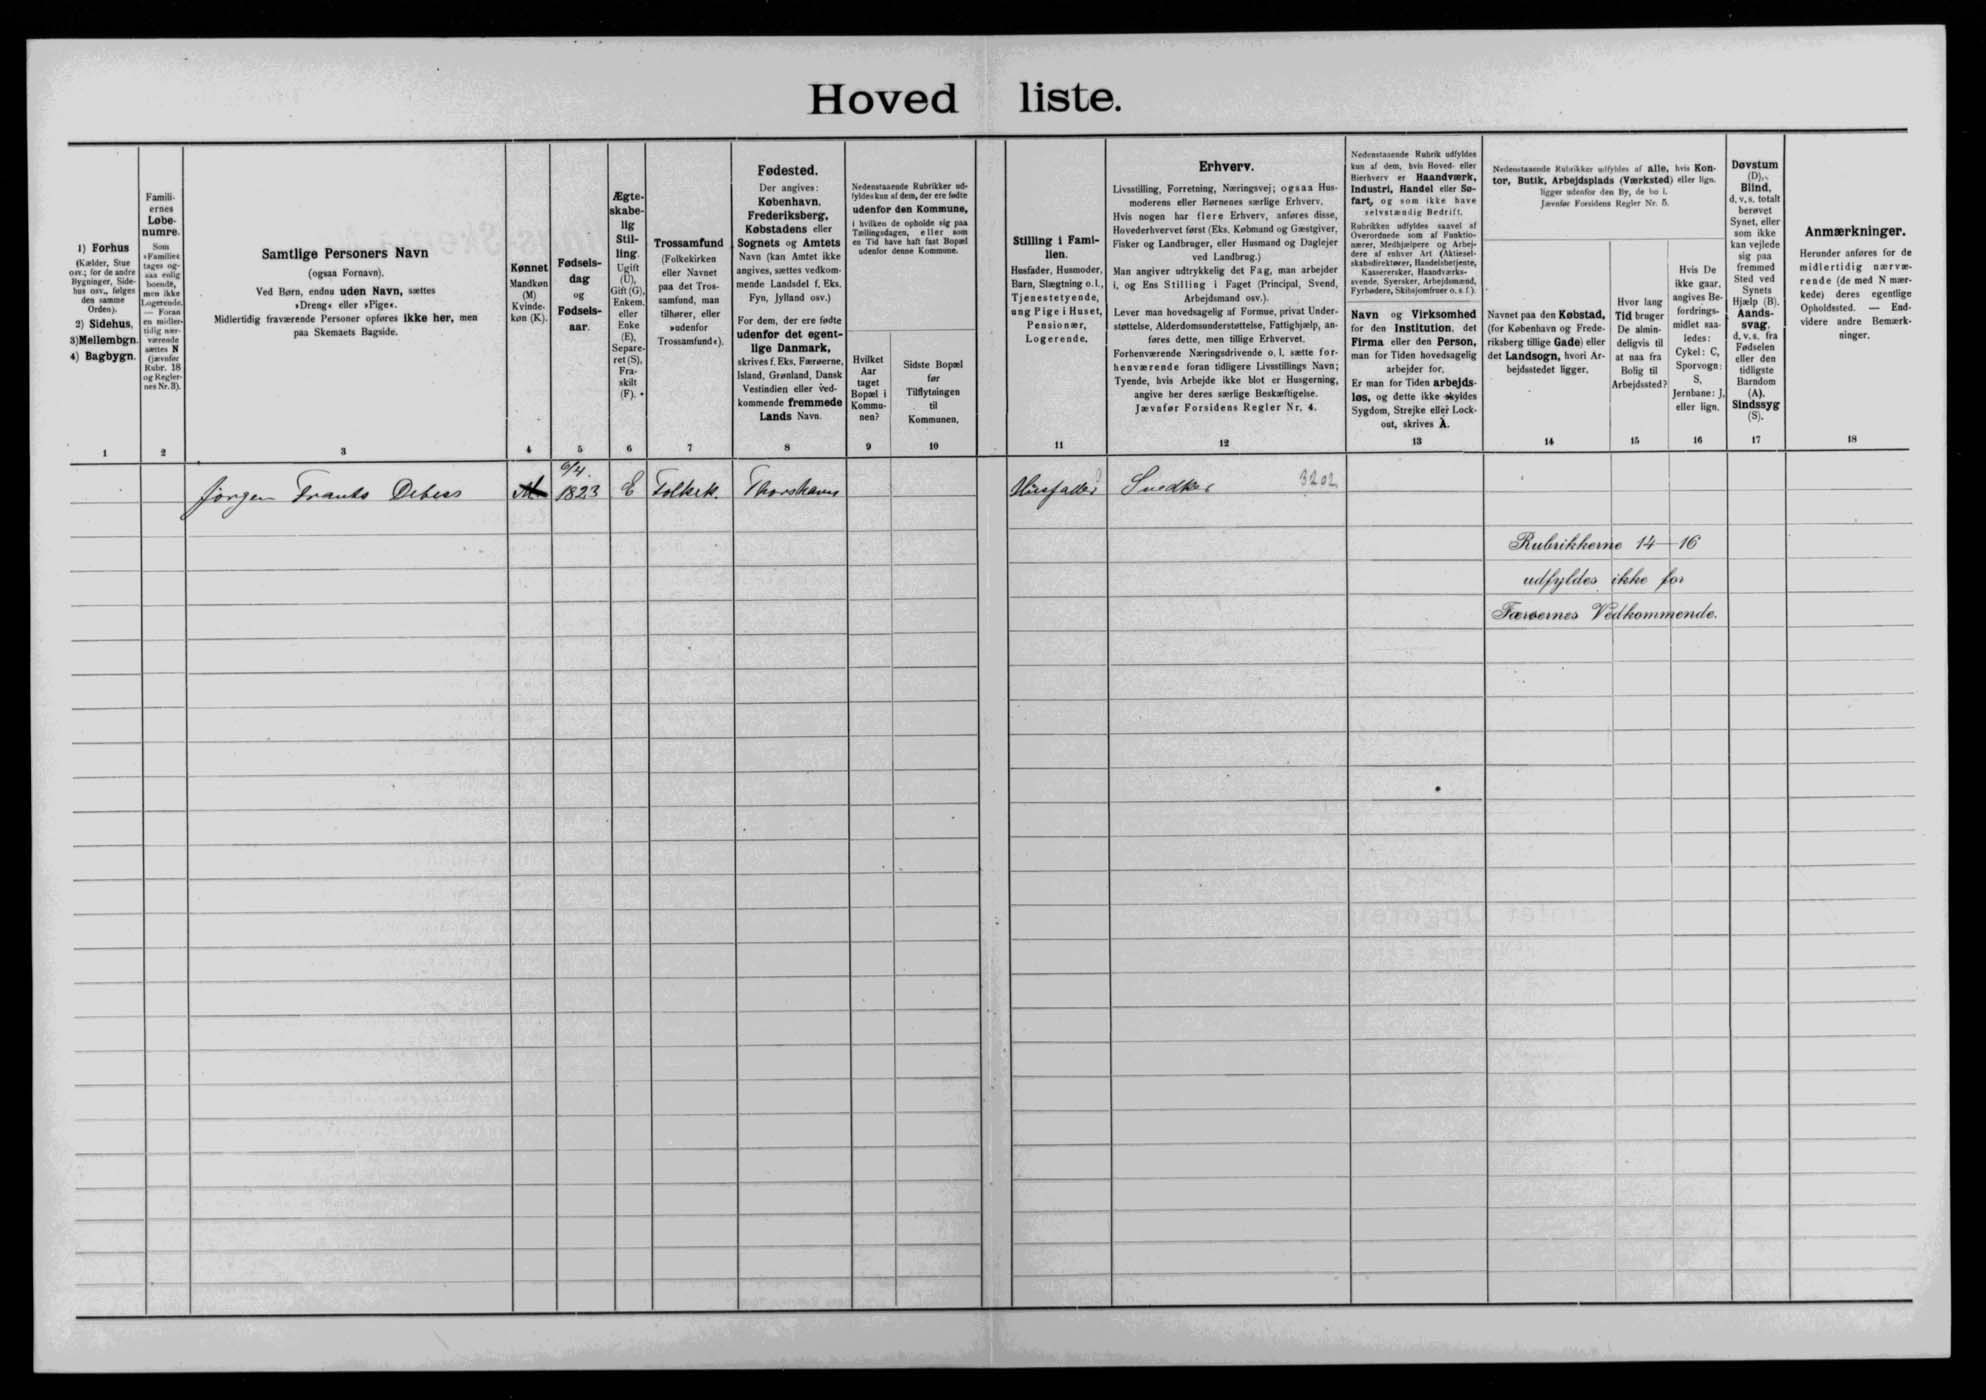 Hoved liste.
1) Forhus
(Kælder, Stue
osv.; for de andre
Bygninger, Side-
hus osv., følges
den samme
Orden).
2) Sidehus,
3) Mellembgn.
4) Bagbygn.
Famili-
ernes
Løbe-
numre.
Som
»Familie«
tages og-
saa enlig
boende,
men ikke
Logerende.
— Foran
en midler-
tidig nær-
værende
sættes N
(jævnfør
Rubr. 18
og Regler-
nes Nr. 3).
Samtlige Personers Navn
(ogsaa Fornavn).
Ved Børn, endnu uden Navn, sættes
»Dreng« eller »Pige«.
Midlertidig fraværende Personer opføres ikke her, men
paa Skemaets Bagside.
Kønnet
Mandkøn
(M)
Kvinde-
køn (K).
Fødsels-
dag
og
Fødsels-
aar.
Ægte-
skabe-
lig
Stil-
ling.
Ugift
(U),
Gift (G),
Enkem.
eller
Enke
(E),
Separe-
ret (S),
Fra-
skilt
(F).
Trossamfund
(Folkekirken
eller Navnet
paa det Tros-
samfund, man
tilhører, eller
»udenfor
Trossamfund«).
Fødested.
Der angives:
København,
Frederiksberg,
Købstadens eller
Sognets og Amtets
Navn (kan Amtet ikke
angives, sættes vedkom-
mende Landsdel f. Eks.
Fyn, Jylland osv.)
For dem, der ere fødte
udenfor det egent-
lige Danmark,
skrives f. Eks. Færøerne,
Island, Grønland, Dansk
Vestindien eller ved-
kommende fremmede
Lands Navn.
Nedenstaaende Rubrikker ud-
fyldes kun af dem, der ere fødte
udenfor den Kommune,
i hvilken de opholde sig paa
Tællingsdagen, eller som
en Tid have haft fast Bopæl
udenfor denne Kommune.
Hvilket
Aar
taget
Bopæl i
Kommu-
nen?
Sidste Bopæl
før
Tilflytningen
til
Kommunen.
Stilling i Fami-
lien.
Husfader, Husmoder,
Barn, Slægtning o.l.,
Tjenestetyende,
ung Pige i Huset,
Pensionær,
Logerende.
Erhverv.
Livsstilling, Forretning, Næringsvej; ogsaa Hus-
moderens eller Børnenes særlige Erhverv.
Hvis nogen har flere Erhverv, anføres disse,
Hovederhvervet først (Eks. Købmand og Gæstgiver,
Fisker og Landbruger, eller Husmand og Daglejer
ved Landbrug.)
Man angiver udtrykkelig det Fag, man arbejder
i, og Ens Stilling i Faget (Principal, Svend,
Arbejdsmand osv.).
Lever man hovedsagelig af Formue, privat Under-
støttelse, Alderdomsunderstøttelse, Fattighjælp, an-
føres dette, men tillige Erhvervet.
Forhenværende Næringsdrivende o. l. sætte for-
henværende foran tidligere Livsstillings Navn;
Tyende, hvis Arbejde ikke blot er Husgerning,
angive her deres særlige Beskæftigelse.
Jævnfør Forsidens Regler Nr. 4.
Nedenstaaende Rubrik udfyldes
kun af dem, hvis Hoved- eller
Bierhverv er Haandværk,
Industri, Handel eller Sø-
fart, og som ikke have
selvstændig Bedrift.
Rubrikken udfyldes saavel af
Overordnede som af Funktio-
nærer, Medhjælpere og Arbej-
dere af enhver Art (Aktiesel-
skabsdirektører, Handelsbetjente,
Kasserersker, Haandværks-
svende, Syersker, Arbejdsmænd,
Fyrbødere, Skibsjomfruer o. s. f.).
Navn og Virksomhed
for den Institution, det
Firma eller den Person,
man for Tiden hovedsagelig
arbejder for.
Er man for Tiden arbejds-
løs, og dette ikke skyldes
Sygdom, Strejke eller Lock-
out, skrives A.
Nedenstaaende Rubrikker udfyldes af alle, hvis Kon-
tor, Butik, Arbejdsplads (Værksted) eller lign.
ligger udenfor den By, de bo i.
Jævnfør Forsidens Regler Nr. 5.
Navnet paa den Købstad,
(for København og Frede-
riksberg tillige Gade) eller
det Landsogn, hvori Ar-
bejdsstedet ligger.
Hvor lang
Tid bruger
De almin-
deligvis til
at naa fra
Bolig til
Arbejdssted?
Hvis De
ikke gaar,
angives Be-
fordrings-
midlet saa-
ledes:
Cykel: C,
Sporvogn:
S,
Jernbane: J,
eller lign.
Døvstum
(D),
Blind,
d. v. s. totalt
berøvet
Synet, eller
som ikke
kan vejlede
sig paa
fremmed
Sted ved
Synets
Hjælp (B).
Aands-
svag,
d. v. s. fra
Fødselen
eller den
tidligste
Barndom
(A).
Sindssyg
(S).
Anmærkninger.
Herunder anføres for de
midlertidig nærvæ-
rende (de med N mær-
kede) deres egentlige
Opholdssted. — End-
videre andre Bemærk-
ninger.
1 2 3 4 5 6 7 8 9 10 11 12 13 14 15 16 17 18
6/4
Jørgen Frants Debess M 1823 E Folkek. Thorshavn Husfader Snedker 3202
Rubrikkerne 14-16
udfyldes ikke for
Færøernes Vedkommende.